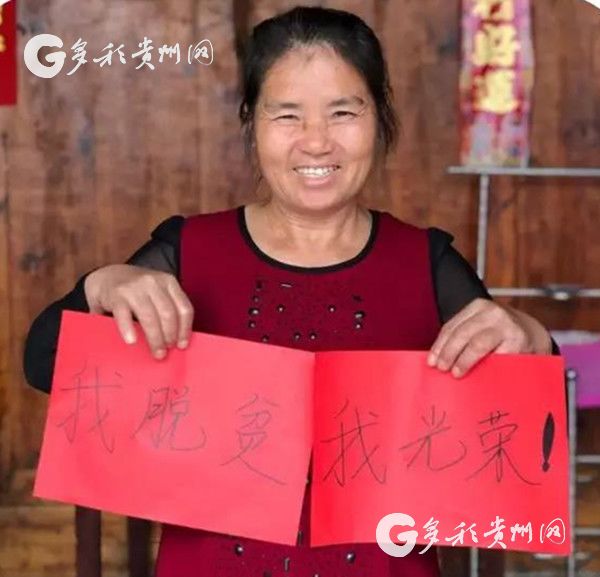 多彩贵州网
好運
我脱贫我光荣！
多彩贵州网